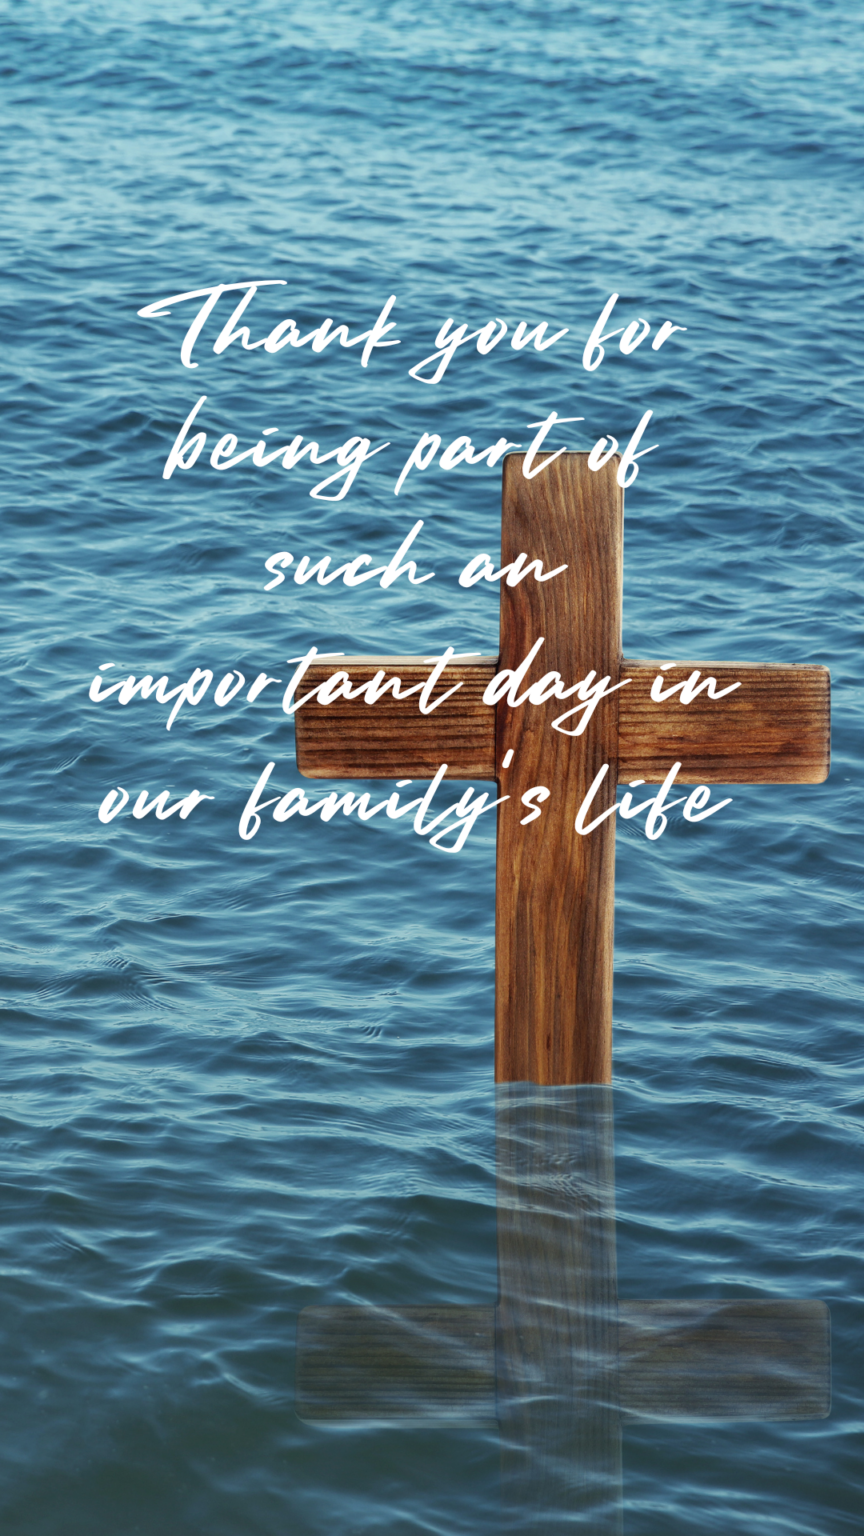 Thank you for
being part of
such an
important day in
our family's life